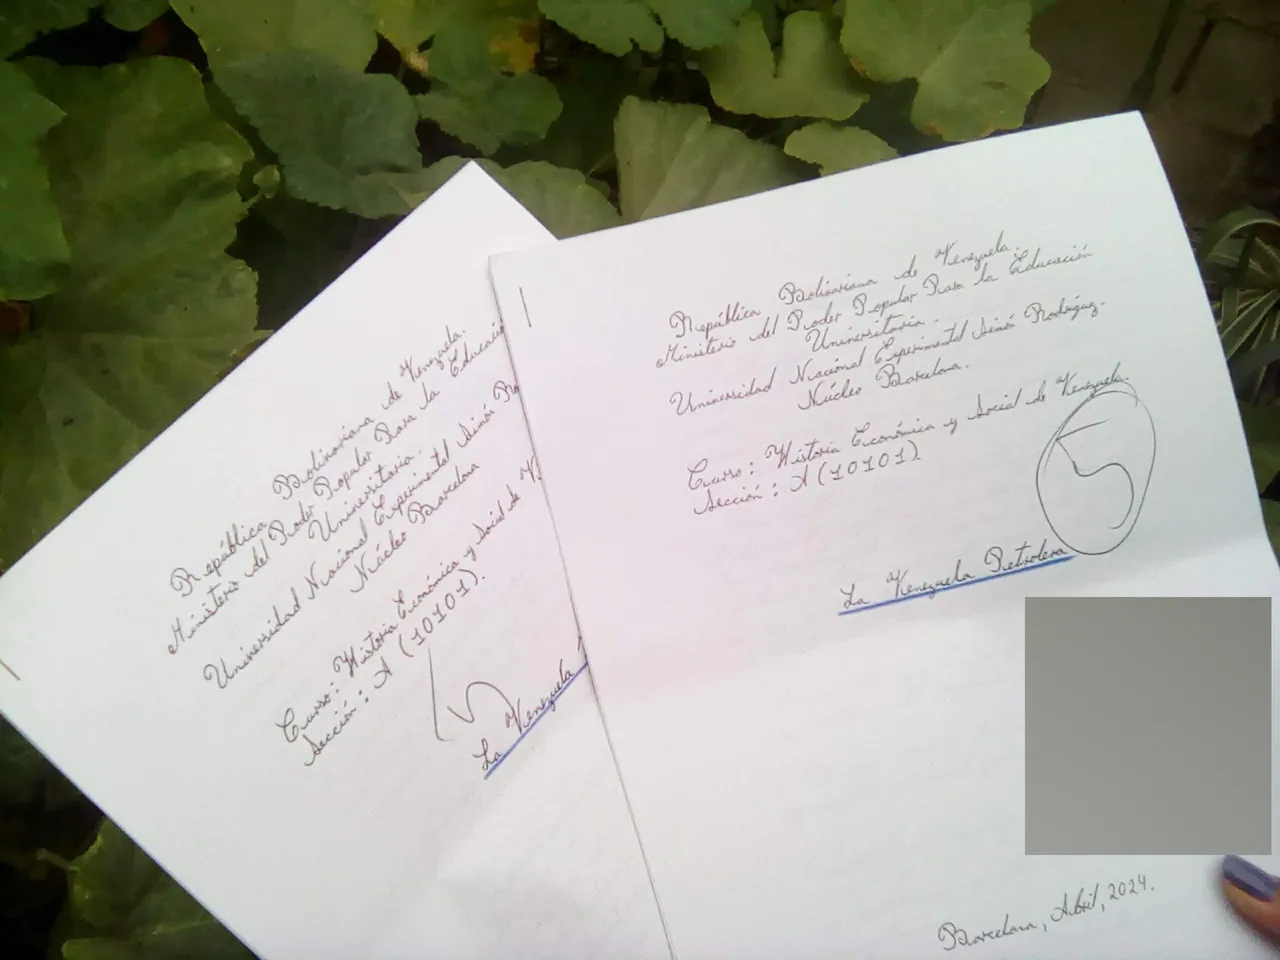 República Bolivariana de Venezuela.
Ministerio del Poder Popular Para la Educació
Universitaria.
Universidad Nacional Experimental Simón Ro
Núcleo Barcelona
Curso: Historia Económica y Social de V
Sección: A (10101).
La Venezuela
República Bolivariana de Venezuela.
Ministerio del Poder Popular Para la Educación
Universitaria.
Universidad Nacional Experimental Simón Rodríguez.
Núcleo Barcelona.
Curso: Historia Económica y Social de Venezuela.
Sección: A (10101)
5
La Venezuela Petrolera
Barcelona, Abril, 2024.